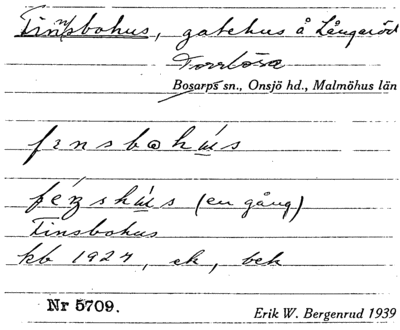 Finnsbohus, gatehus å Långaröd
Torrlösa
Bosarps sn., Onsjö hd., Malmöhus län
(en gång)
Finsbohus
kb 1927, ek, bek
Nr 5709.
Erik W. Bergenrud 1939